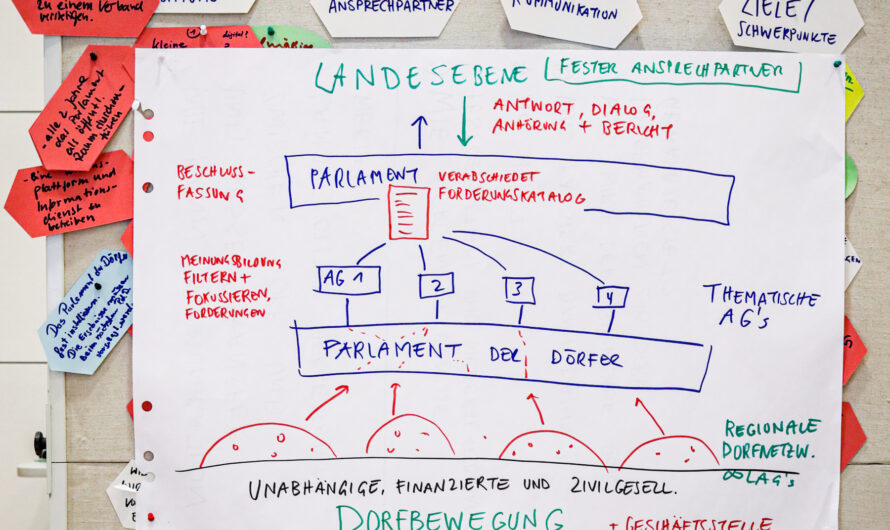 zu einem Verband
ANSPRECHPARTNER
KOMMUNIKATION
ZIELE/
SCHWERPUNKTE
kleine
digital?
LANDESEBENE
FESTER ANSPRECHPARTNER
ANTWORT, DIALOG,
ANHÖRUNG + BERICHT
- alle 2 Jahre
das Parlament
als öffentl.
BESCHLUSS-
FASSUNG
PARLAMENT
VERABSCHIEDET
FORDERUNGSKATALOG
plattform und
Informations-
dienst zu
betreiben
MEINUNGSBILDUNG
FILTERN +
FOKUSSIEREN,
FORDERUNGEN
AG 1
2
3
4
THEMATISCHE
AG's
Das Parlament der Dörfer
PARLAMENT DER DÖRFER
REGIONALE
DORFNETZW.
LAG's
UNABHÄNGIGE, FINANZIERTE UND ZIVILGESELL.
DORFBEWEGUNG
+ GESCHÄFTSSTELLE